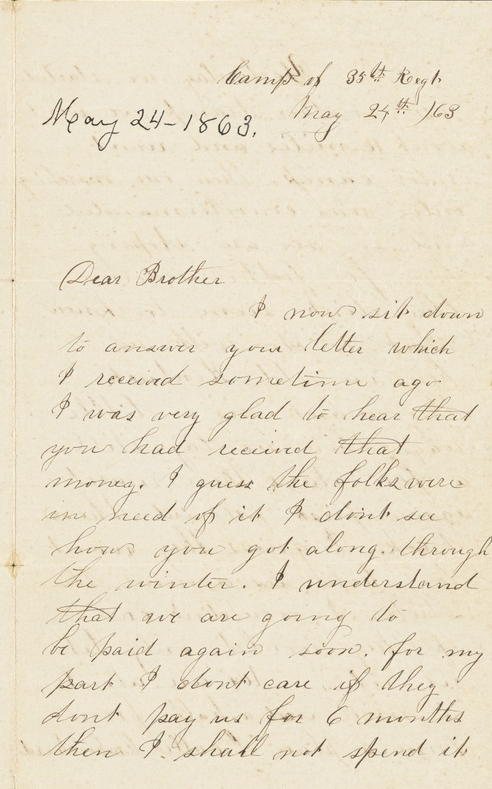 Camp of 35th Regt
May 24th /63
May 24-1863.
Dear Brother
I now sit down
to answer your letter which
I received sometime ago
I was very glad to hear that
you had received that
money. I guess the folks were
in need of it I dont see
how you got along through
the winter. I understand
that we are going to
be paid again soon. for my
part I dont care if they
dont pay us for 6 months
then I shall not spend it